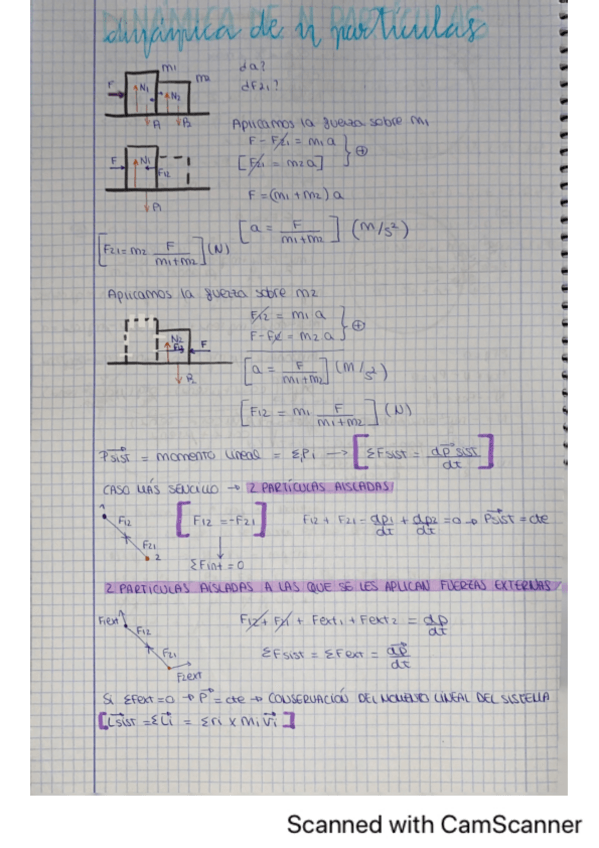 dinámica de n partículas
m1
m2
F
N1
N2
P1
P2
¿a?
¿F21?
Aplicamos la fuerza sobre m1
F - F21 = m1 a
[F21 = m2 a] } ⊕
F = (m1 + m2) a
F
N1
F12
P1
[a = F / m1+m2] (m/s²)
[F21 = m2 F / m1+m2] (N)
Aplicamos la fuerza sobre m2
F12 = m1 a
F - F12 = m2 a } ⊕
N2
F
P2
[a = F / m1+m2] (m/s²)
[F12 = m1 F / m1+m2] (N)
Psist = momento lineal = ΣPi → [ΣFsist = dPsist / dt]
CASO MÁS SENCILLO → 2 PARTÍCULAS AISLADAS
1
F12
F21
2
[F12 = -F21]
F12 + F21 = dp1/dt + dp2/dt = 0 → Psist = cte
ΣFint = 0
2 PARTICULAS AISLADAS A LAS QUE SE LES APLICAN FUERZAS EXTERNAS
F1ext
F12
F21
F2ext
F12 + F21 + Fext1 + Fext2 = dp/dt
ΣFsist = ΣFext = dp/dt
Si ΣFext = 0 → P = cte → CONSERVACIÓN DEL MOMENTO LINEAL DEL SISTEMA
[Lsist = ΣLi = Σri x mi vi]
Scanned with CamScanner